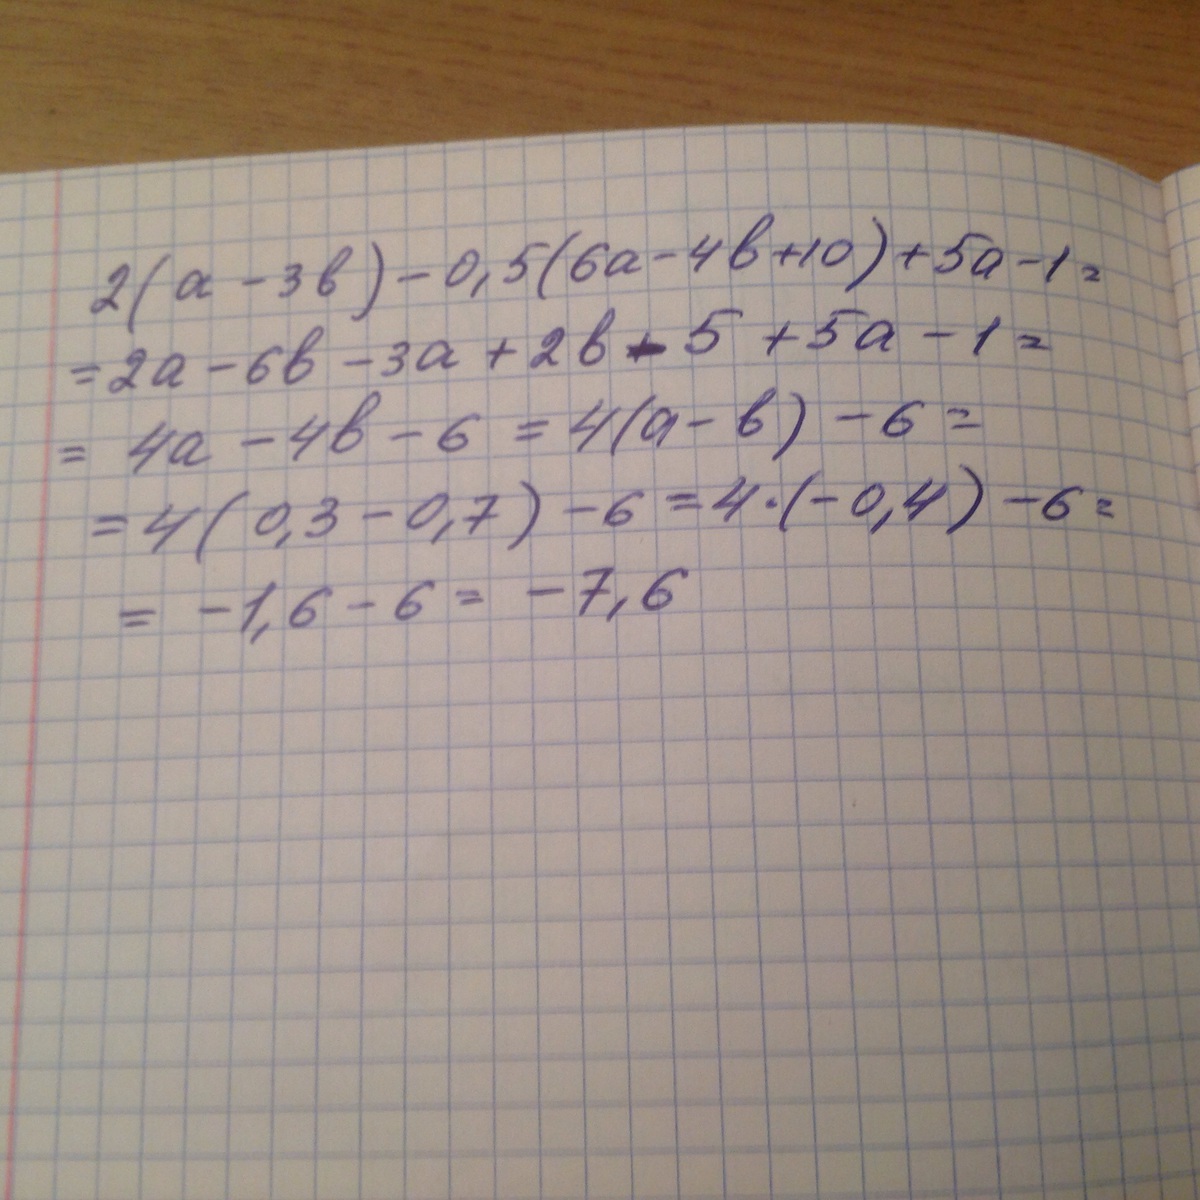 2(a - 3b) - 0,5(6a - 4b + 10) + 5a - 1 =
= 2a - 6b - 3a + 2b - 5 + 5a - 1 =
= 4a - 4b - 6 = 4(a - b) - 6 =
= 4(0,3 - 0,7) - 6 = 4·(-0,4) - 6 =
= -1,6 - 6 = -7,6